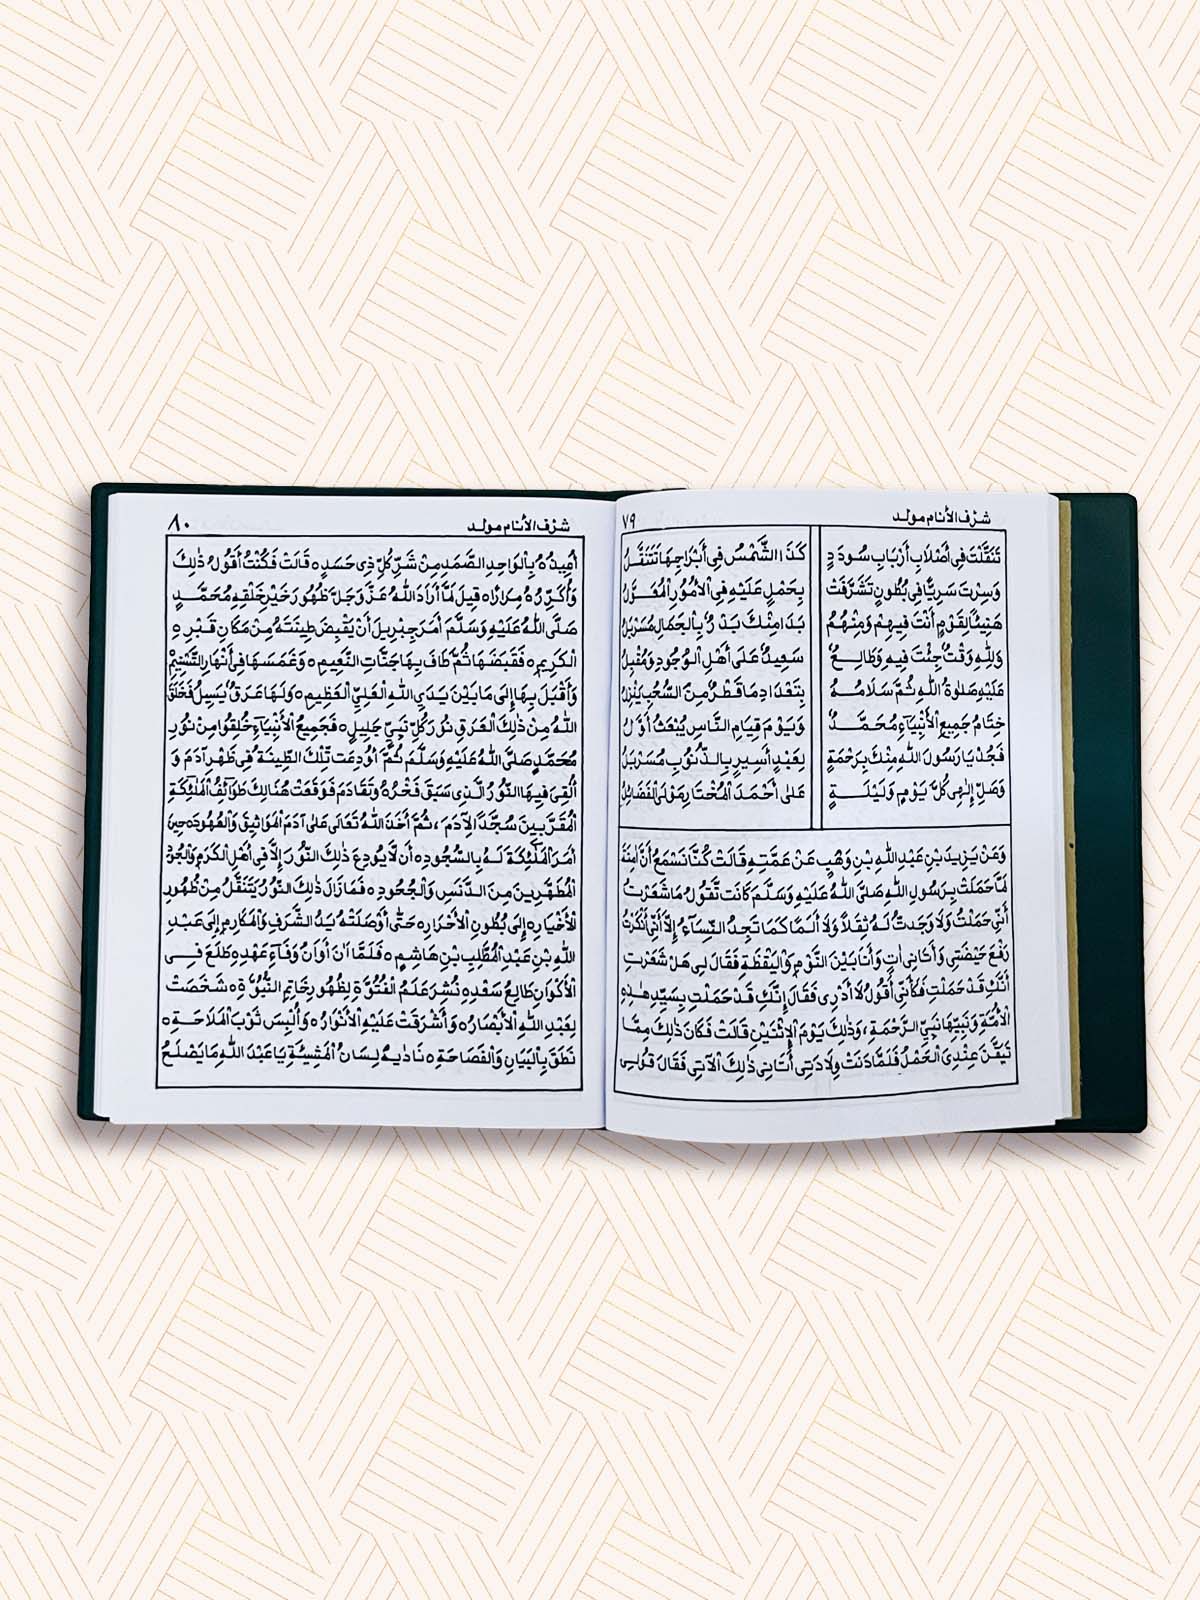 شَرَّفَ الأنام مولد ٧٩
تَنَقَّلْتَ فِي أَصْلَابِ أَرْبَابِ سُودَدٍ كَذَا الشَّمْسُ فِي أَبْرَاجِهَا تَتَنَقَّلُ
وَسِرْتَ سَرِيًّا فِي بُطُونٍ تَشَرَّفَتْ بِحَمْلٍ عَلَيْهِ فِي الْأُمُورِ الْمُعَوَّلُ
هَنِيئًا لِقَوْمٍ أَنْتَ فِيهِمْ وَمِنْهُمُ بَدَا مِنْكَ بَدْرٌ بِالْجَمَالِ مُسَرْبَلُ
وَلِلّٰهِ وَقْتٌ جِئْتَ فِيهِ وَطَالِعٌ سَعِيدٌ عَلَى أَهْلِ الْوُجُودِ وَمُقْبِلُ
عَلَيْهِ صَلٰوةُ اللّٰهِ ثُمَّ سَلَامُهُ بِتَعْدَادِ مَا قَطْرٌ مِنَ السُّحُبِ يَنْزِلُ
خِتَامُ جَمِيعِ الْأَنْبِيَاءِ مُحَمَّدٌ وَيَوْمَ قِيَامِ النَّاسِ يُبْعَثُ أَوَّلُ
فَجُدْ يَا رَسُولَ اللّٰهِ مِنْكَ بِرَحْمَةٍ لِعَبْدٍ أَسِيرٍ بِالذُّنُوبِ مُسَرْبَلُ
وَصَلِّ إِلٰهِي كُلَّ يَوْمٍ وَلَيْلَةٍ عَلَى أَحْمَدَ الْمُخْتَارِ مَوْلَى الْفَضَائِلُ
وَعَنْ يَزِيدَ بْنِ عَبْدِ اللّٰهِ بْنِ وَهْبٍ عَنْ عَمَّتِهِ قَالَتْ كُنَّا نَسْمَعُ أَنَّ اٰمِنَةَ
لَمَّا حَمَلَتْ بِرَسُولِ اللّٰهِ صَلَّى اللّٰهُ عَلَيْهِ وَسَلَّمَ كَانَتْ تَقُولُ مَا شَعَرْتُ
أَنِّي حَمَلْتُ وَلَا وَجَدْتُ لَهُ ثِقَلًا وَلَا أَلَمًا كَمَا تَجِدُ النِّسَاءُ إِلَّا أَنِّي أَنْكَرْتُ
رَفْعَ حَيْضَتِي وَأَتَانِي اٰتٍ وَأَنَا بَيْنَ النَّوْمِ وَالْيَقْظَةِ فَقَالَ لِي هَلْ شَعَرْتِ
أَنَّكِ قَدْ حَمَلْتِ فَكَأَنِّي أَقُولُ لَا أَدْرِي فَقَالَ إِنَّكِ قَدْ حَمَلْتِ بِسَيِّدِ هٰذِهِ
الْأُمَّةِ وَنَبِيِّهَا نَبِيِّ الرَّحْمَةِ، وَذٰلِكَ يَوْمَ الْإِثْنَيْنِ قَالَتْ فَكَانَ ذٰلِكَ مِمَّا
تَيَقَّنَ عِنْدِي الْحَمْلُ فَلَمَّا دَنَتْ وِلَادَتِي أَتَانِي ذٰلِكَ الْاٰتِي فَقَالَ قُولِي
شَرَّفَ الأنام مولد ٨٠
أُعِيذُهُ بِالْوَاحِدِ الصَّمَدِ مِنْ شَرِّ كُلِّ ذِي حَسَدٍ ه قَالَتْ فَكُنْتُ أَقُولُ ذٰلِكَ
وَأُكَرِّرُهُ مِرَارًا ه قِيلَ لَمَّا أَرَادَ اللّٰهُ عَزَّ وَجَلَّ ظُهُورَ خَيْرِ خَلْقِهِ مُحَمَّدٍ
صَلَّى اللّٰهُ عَلَيْهِ وَسَلَّمَ أَمَرَ جِبْرِيلَ أَنْ يَقْبِضَ طِينَتَهُ مِنْ مَكَانِ قَبْرِهِ
الْكَرِيمِ ه فَقَبَضَهَا ثُمَّ طَافَ بِهَا جَنَّاتِ النَّعِيمِ ه وَغَمَسَهَا فِي أَنْهَارِ التَّسْنِيمِ
وَأَقْبَلَ بِهَا إِلَى مَا بَيْنَ يَدَيِ اللّٰهِ الْعَلِيِّ الْعَظِيمِ ه وَلَهَا عَرَقٌ يَسِيلُ فَخَلَقَ
اللّٰهُ مِنْ ذٰلِكَ الْعَرَقِ نُورَ كُلِّ نَبِيٍّ جَلِيلٍ ه فَجَمِيعُ الْأَنْبِيَاءِ خُلِقُوا مِنْ نُورِ
مُحَمَّدٍ صَلَّى اللّٰهُ عَلَيْهِ وَسَلَّمَ ثُمَّ أُودِعَتْ تِلْكَ الطِّينَةُ فِي ظَهْرِ اٰدَمَ وَ
أُلْقِيَ فِيهَا النُّورُ الَّذِي سَبَقَ فَخْرُهُ وَتَقَادَمَ فَوَقَعَتْ هُنَالِكَ طَوَائِفُ الْمَلٰئِكَةِ
الْمُقَرَّبِينَ سُجَّدًا لِاٰدَمَ، ثُمَّ أَخَذَ اللّٰهُ تَعَالَى عَلَى اٰدَمَ الْمَوَاثِيقَ وَالْعُهُودَ ه حِينَ
أَمَرَ الْمَلٰئِكَةَ لَهُ بِالسُّجُودِ ه أَنْ لَا يُودِعَ ذٰلِكَ النُّورَ إِلَّا فِي أَهْلِ الْكَرَمِ وَالْجُودِ
الْمُطَهَّرِينَ مِنَ الدَّنَسِ وَالْجُحُودِ ه فَمَا زَالَ ذٰلِكَ النُّورُ يَتَنَقَّلُ مِنْ ظُهُورِ
الْأَخْيَارِ ه إِلَى بُطُونِ الْأَحْرَارِ ه حَتَّى أَوْصَلَتْهُ يَدُ الشَّرَفِ وَالْمَكَارِمِ إِلَى عَبْدِ
اللّٰهِ بْنِ عَبْدِ الْمُطَّلِبِ بْنِ هَاشِمٍ ه فَلَمَّا اٰنَ أَوَانُ وَفَاءِ عَهْدِهِ طَلَعَ فِي
الْأَكْوَانِ طَالِعُ سَعْدِهِ نُشِرَ عَلَمُ الْفُتُوَّةِ لِظُهُورِ خَاتِمِ النُّبُوَّةِ ه شَخَصَتْ
لِعَبْدِ اللّٰهِ الْأَبْصَارُ ه وَأَشْرَقَتْ عَلَيْهِ الْأَنْوَارُ ه وَأُلْبِسَ ثَوْبَ الْمَلَاحَةِ ه
نَطَقَ بِالْبَيَانِ وَالْفَصَاحَةِ ه نَادَيهُ لِسَانُ الْمَشِيئَةِ يَا عَبْدَ اللّٰهِ مَا يَصْلَحُ